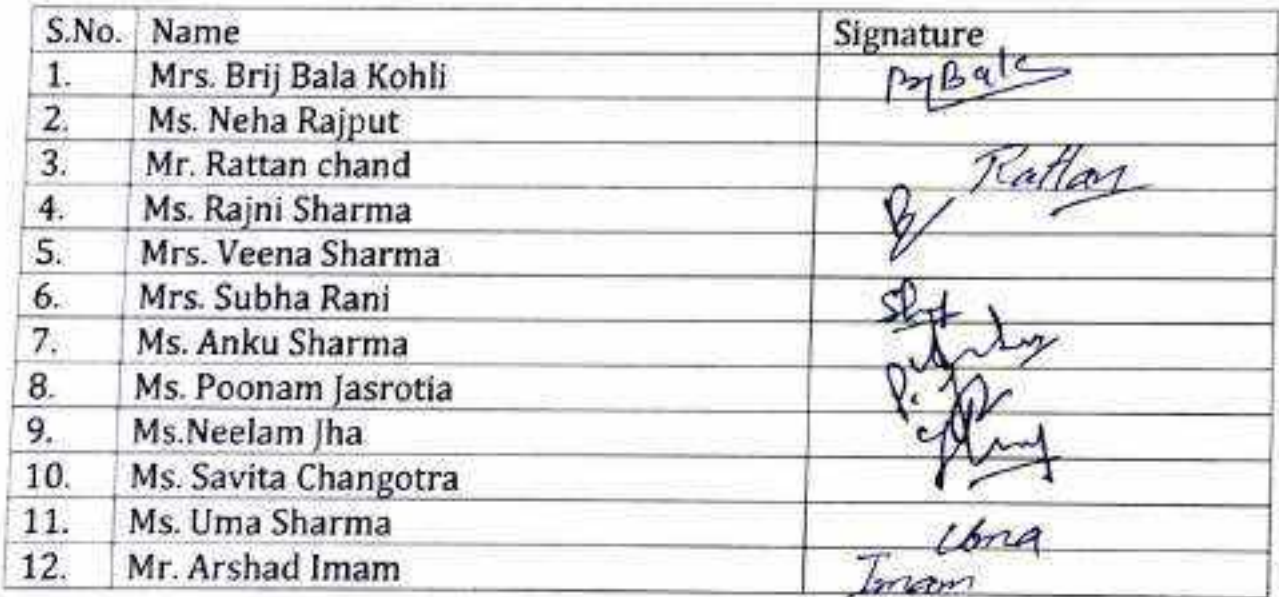 S.No. Name Signature
1. Mrs. Brij Bala Kohli BjBala
2. Ms. Neha Rajput
3. Mr. Rattan chand Rattan
4. Ms. Rajni Sharma
5. Mrs. Veena Sharma
6. Mrs. Subha Rani
7. Ms. Anku Sharma
8. Ms. Poonam Jasrotia
9. Ms.Neelam Jha
10. Ms. Savita Changotra
11. Ms. Uma Sharma Uma
12. Mr. Arshad Imam Imam